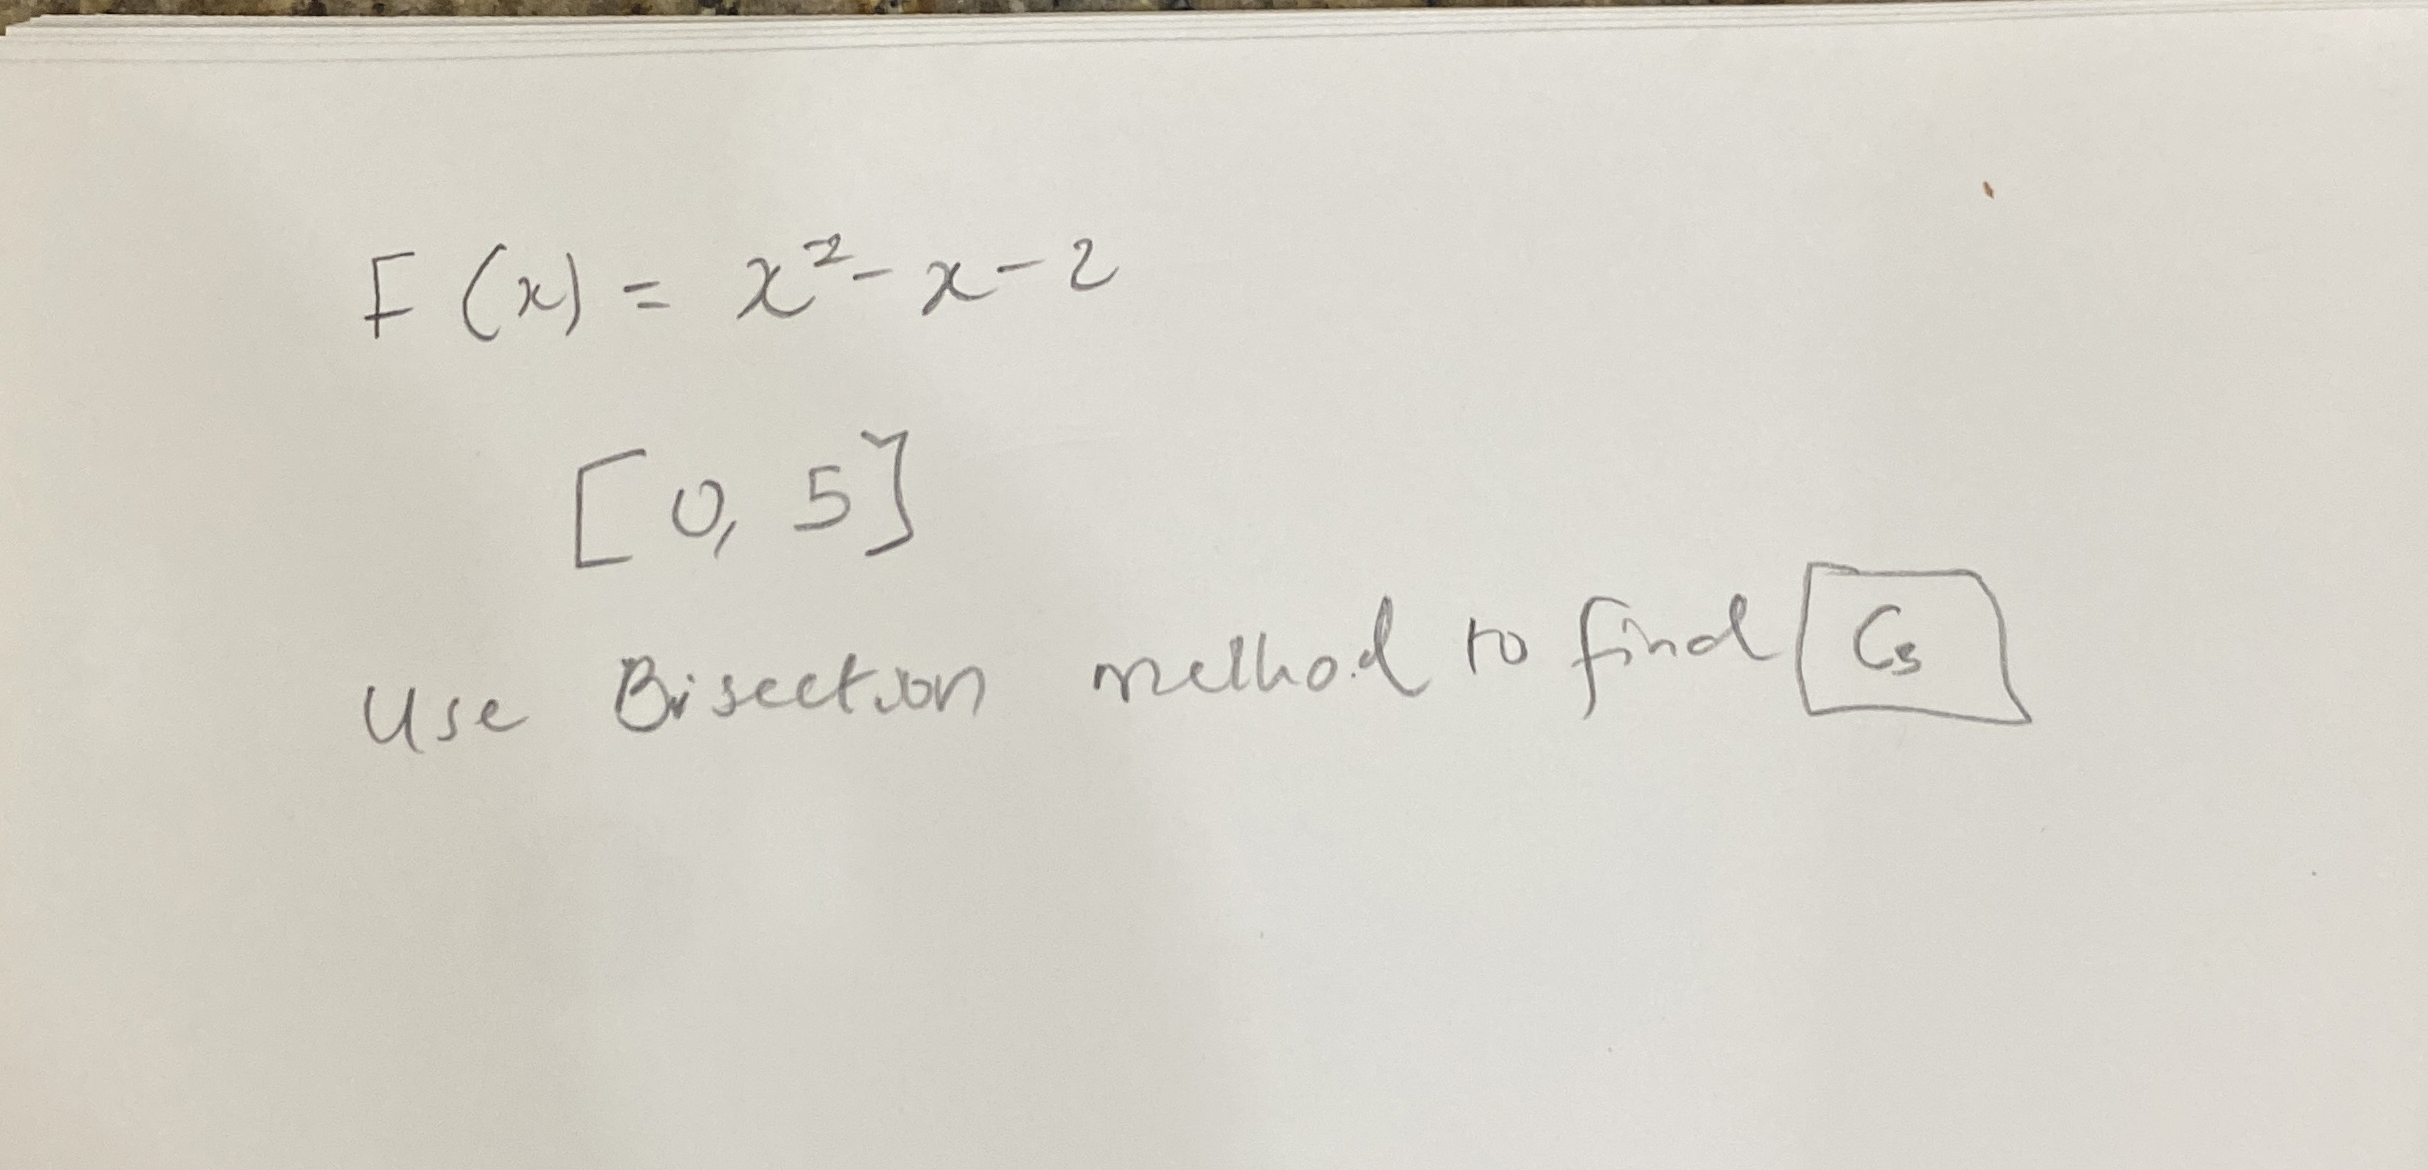 F(x) = x² - x - 2
[0, 5]
Use Bisection method to find C₃